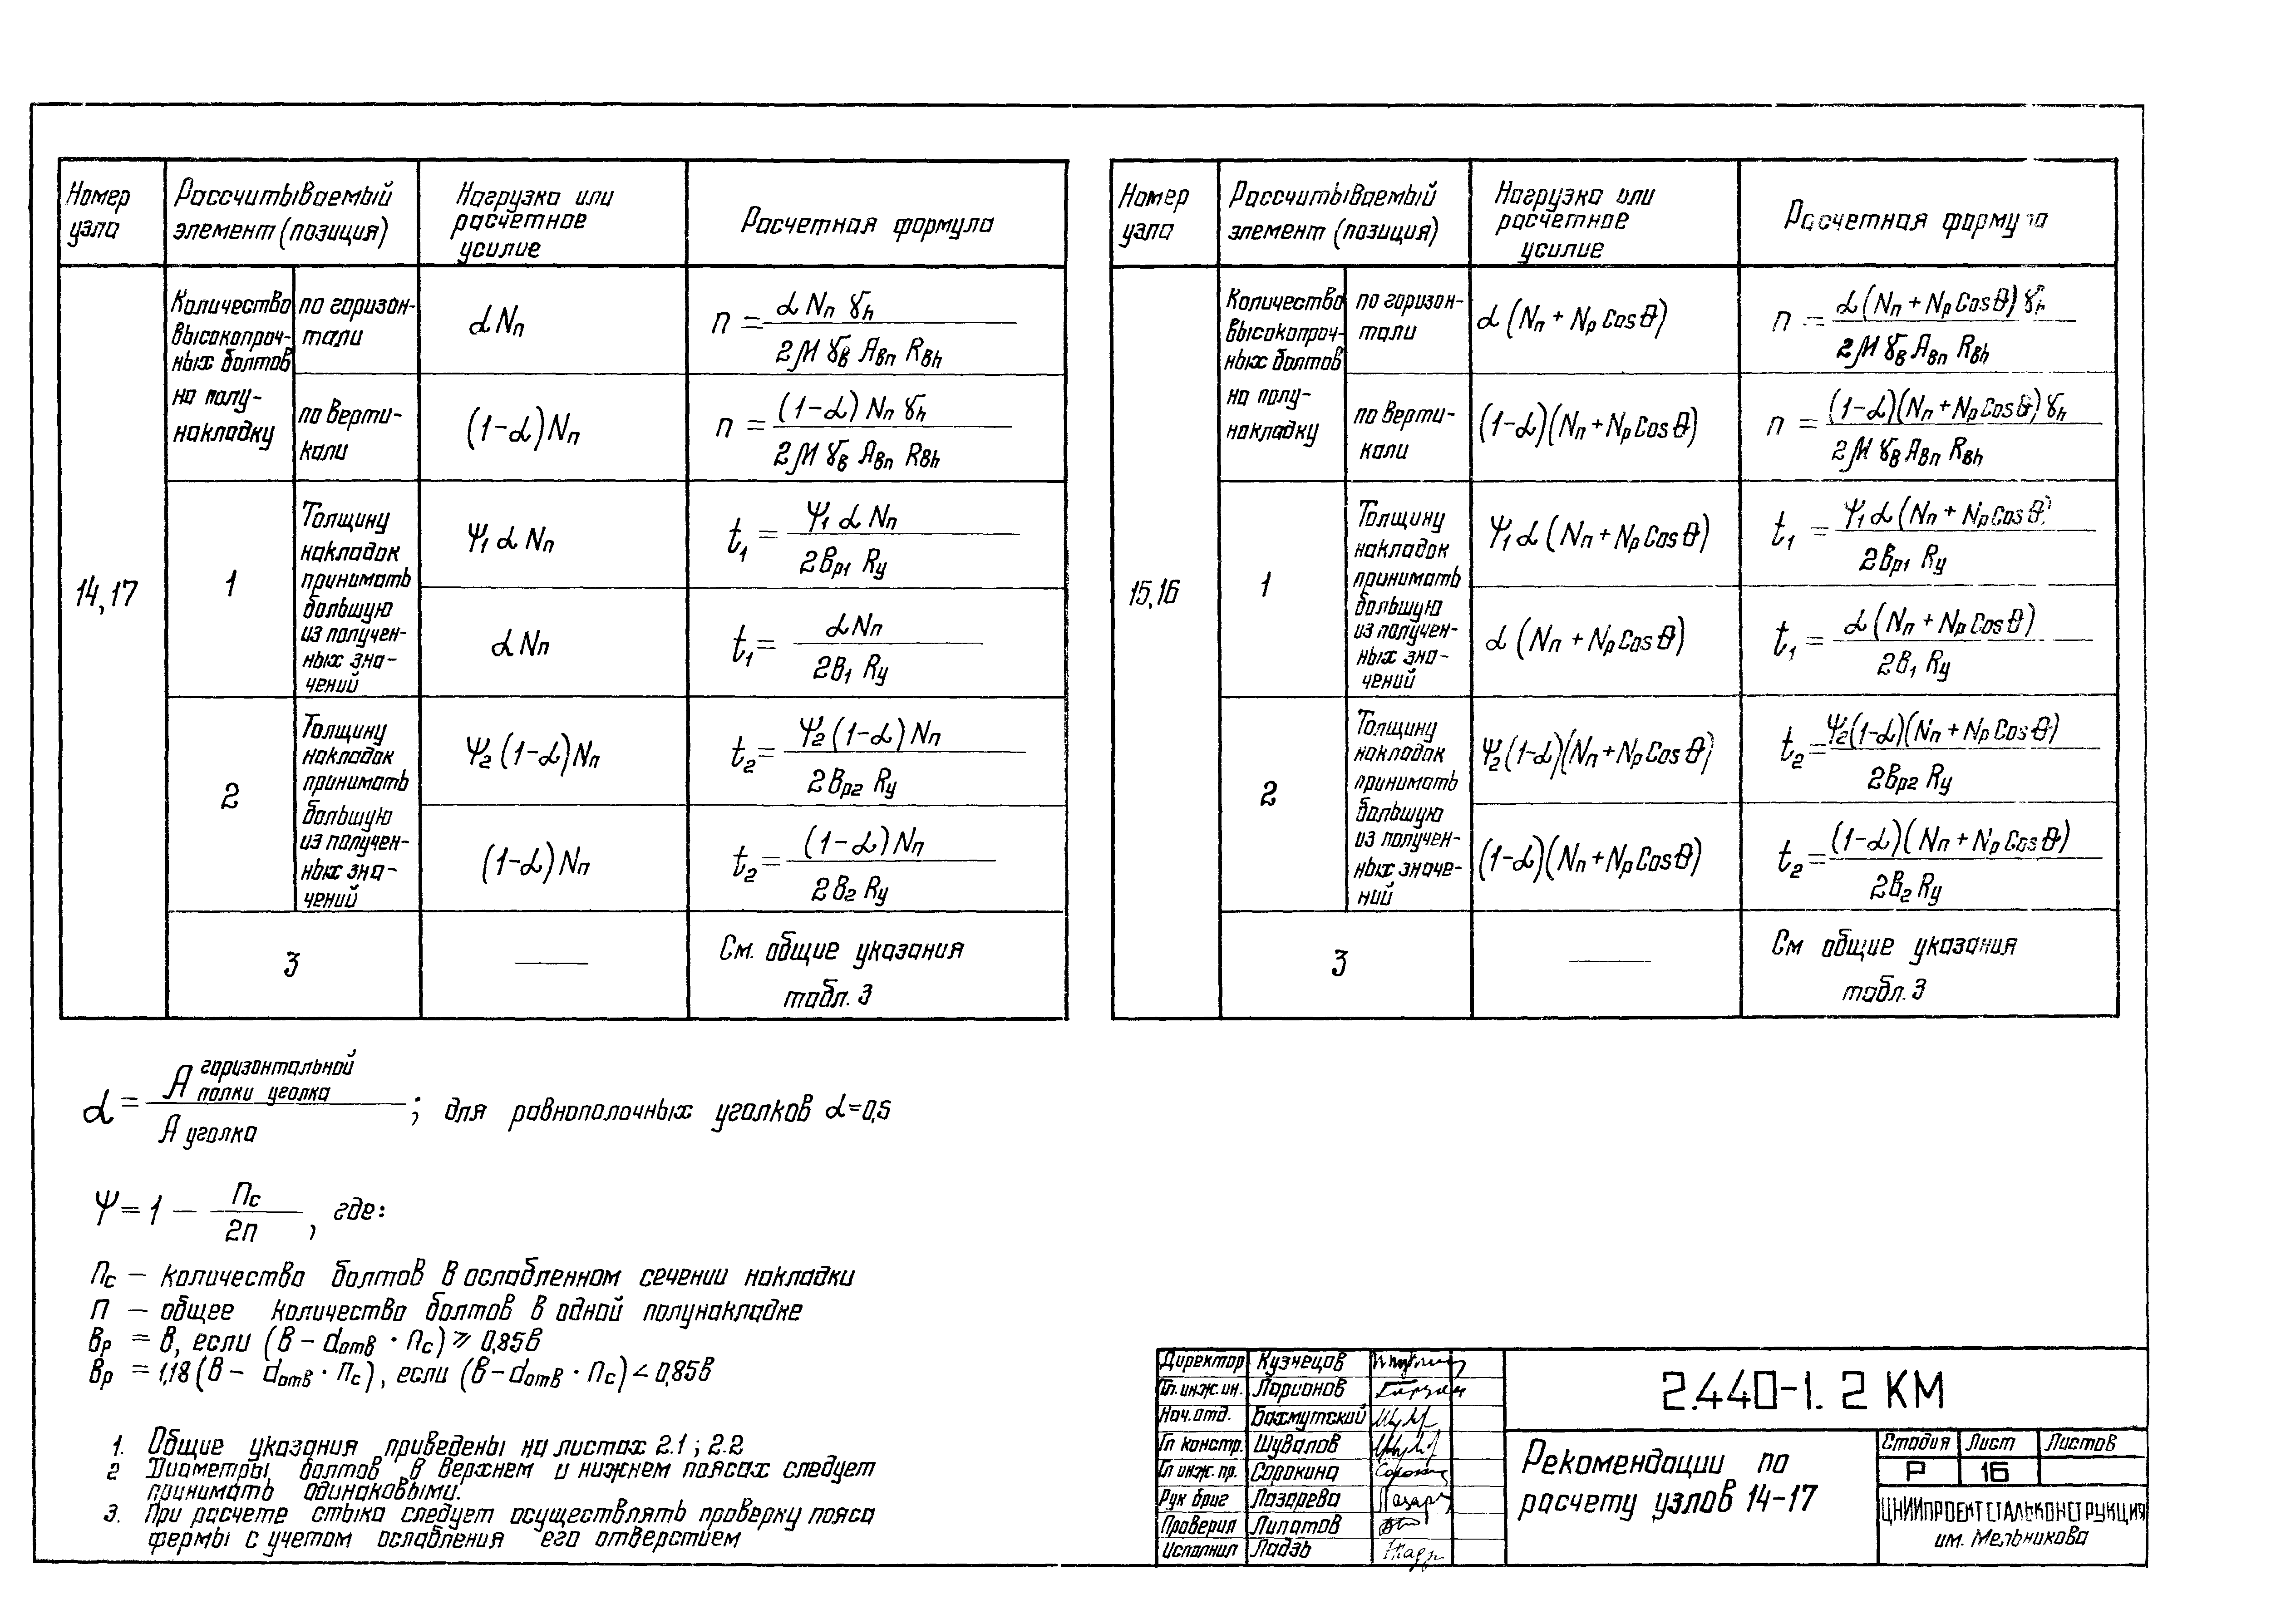 Номер узла
Рассчитываемый элемент (позиция)
Нагрузка или расчетное усилие
Расчетная формула
14,17
Количество высокопроч-
ных болтов на полу-
накладку
по горизон-
тали
αNп
n = αNп γh / 2μ γв Aвп Rвh
по верти-
кали
(1-α)Nп
n = (1-α) Nп γh / 2μ γв Aвп Rвh
1
Толщину
накладок
принимать
большую
из получен-
ных зна-
чений
Ψ1 α Nп
t1 = Ψ1 α Nп / 2вр1 Rу
αNп
t1 = αNп / 2в1 Rу
2
Толщину
накладок
принимать
большую
из получен-
ных зна-
чений
Ψ2 (1-α)Nп
t2 = Ψ2 (1-α) Nп / 2вр2 Rу
(1-α)Nп
t2 = (1-α)Nп / 2в2 Rу
3
—
См. общие указания
табл. 3
Номер узла
Рассчитываемый элемент (позиция)
Нагрузка или расчетное усилие
Расчетная формула
15,16
Количество высокопроч-
ных болтов на полу-
накладку
по горизон-
тали
α (Nп + Nр Cos θ)
n = α (Nп + Nр Cos θ) γh / 2μ γв Aвп Rвh
по верти-
кали
(1-α)(Nп + Nр Cos θ)
n = (1-α)(Nп + Nр Cos θ) γh / 2μ γв Aвп Rвh
1
Толщину
накладок
принимать
большую
из получен-
ных зна-
чений
Ψ1 α (Nп + Nр Cos θ)
t1 = Ψ1 α (Nп + Nр Cos θ) / 2вр1 Rу
α (Nп + Nр Cos θ)
t1 = α (Nп + Nр Cos θ) / 2в1 Rу
2
Толщину
накладок
принимать
большую
из получен-
ных значе-
ний
Ψ2 (1-α)(Nп + Nр Cos θ)
t2 = Ψ2 (1-α)(Nп + Nр Cos θ) / 2вр2 Rу
(1-α)(Nп + Nр Cos θ)
t2 = (1-α)(Nп + Nр Cos θ) / 2в2 Rу
3
—
См общие указания
табл. 3
α = A горизонтальной полки уголка / A уголка ; для равнополочных уголков α=0,5
Ψ = 1 − nс / 2n , где:
nс — количество болтов в ослабленном сечении накладки
n — общее количество болтов в одной полунакладке
вр = в, если (в − dотв · nс) ⩾ 0,85в
вр = 1,18 (в − dотв · nс), если (в − dотв · nс) < 0,85в
1. Общие указания приведены на листах 2.1 ; 2.2
2 Диаметры болтов в верхнем и нижнем поясах следует
принимать одинаковыми.
3. При расчете стыка следует осуществлять проверку пояса
фермы с учетом ослабления его отверстием
Директор Кузнецов
Гл.инж.ин. Ларионов
Нач.отд. Бахмутский
Гл констр. Шувалов
Гл инж. пр. Сорокина
Рук бриг Лазарева
Проверил Липатов
Исполнил Ладзь
2.440-1. 2 КМ
Рекомендации по
расчету узлов 14-17
Стадия Лист Листов
Р 16
ЦНИИПРОЕКТСТАЛЬКОНСТРУКЦИЯ
им. Мельникова